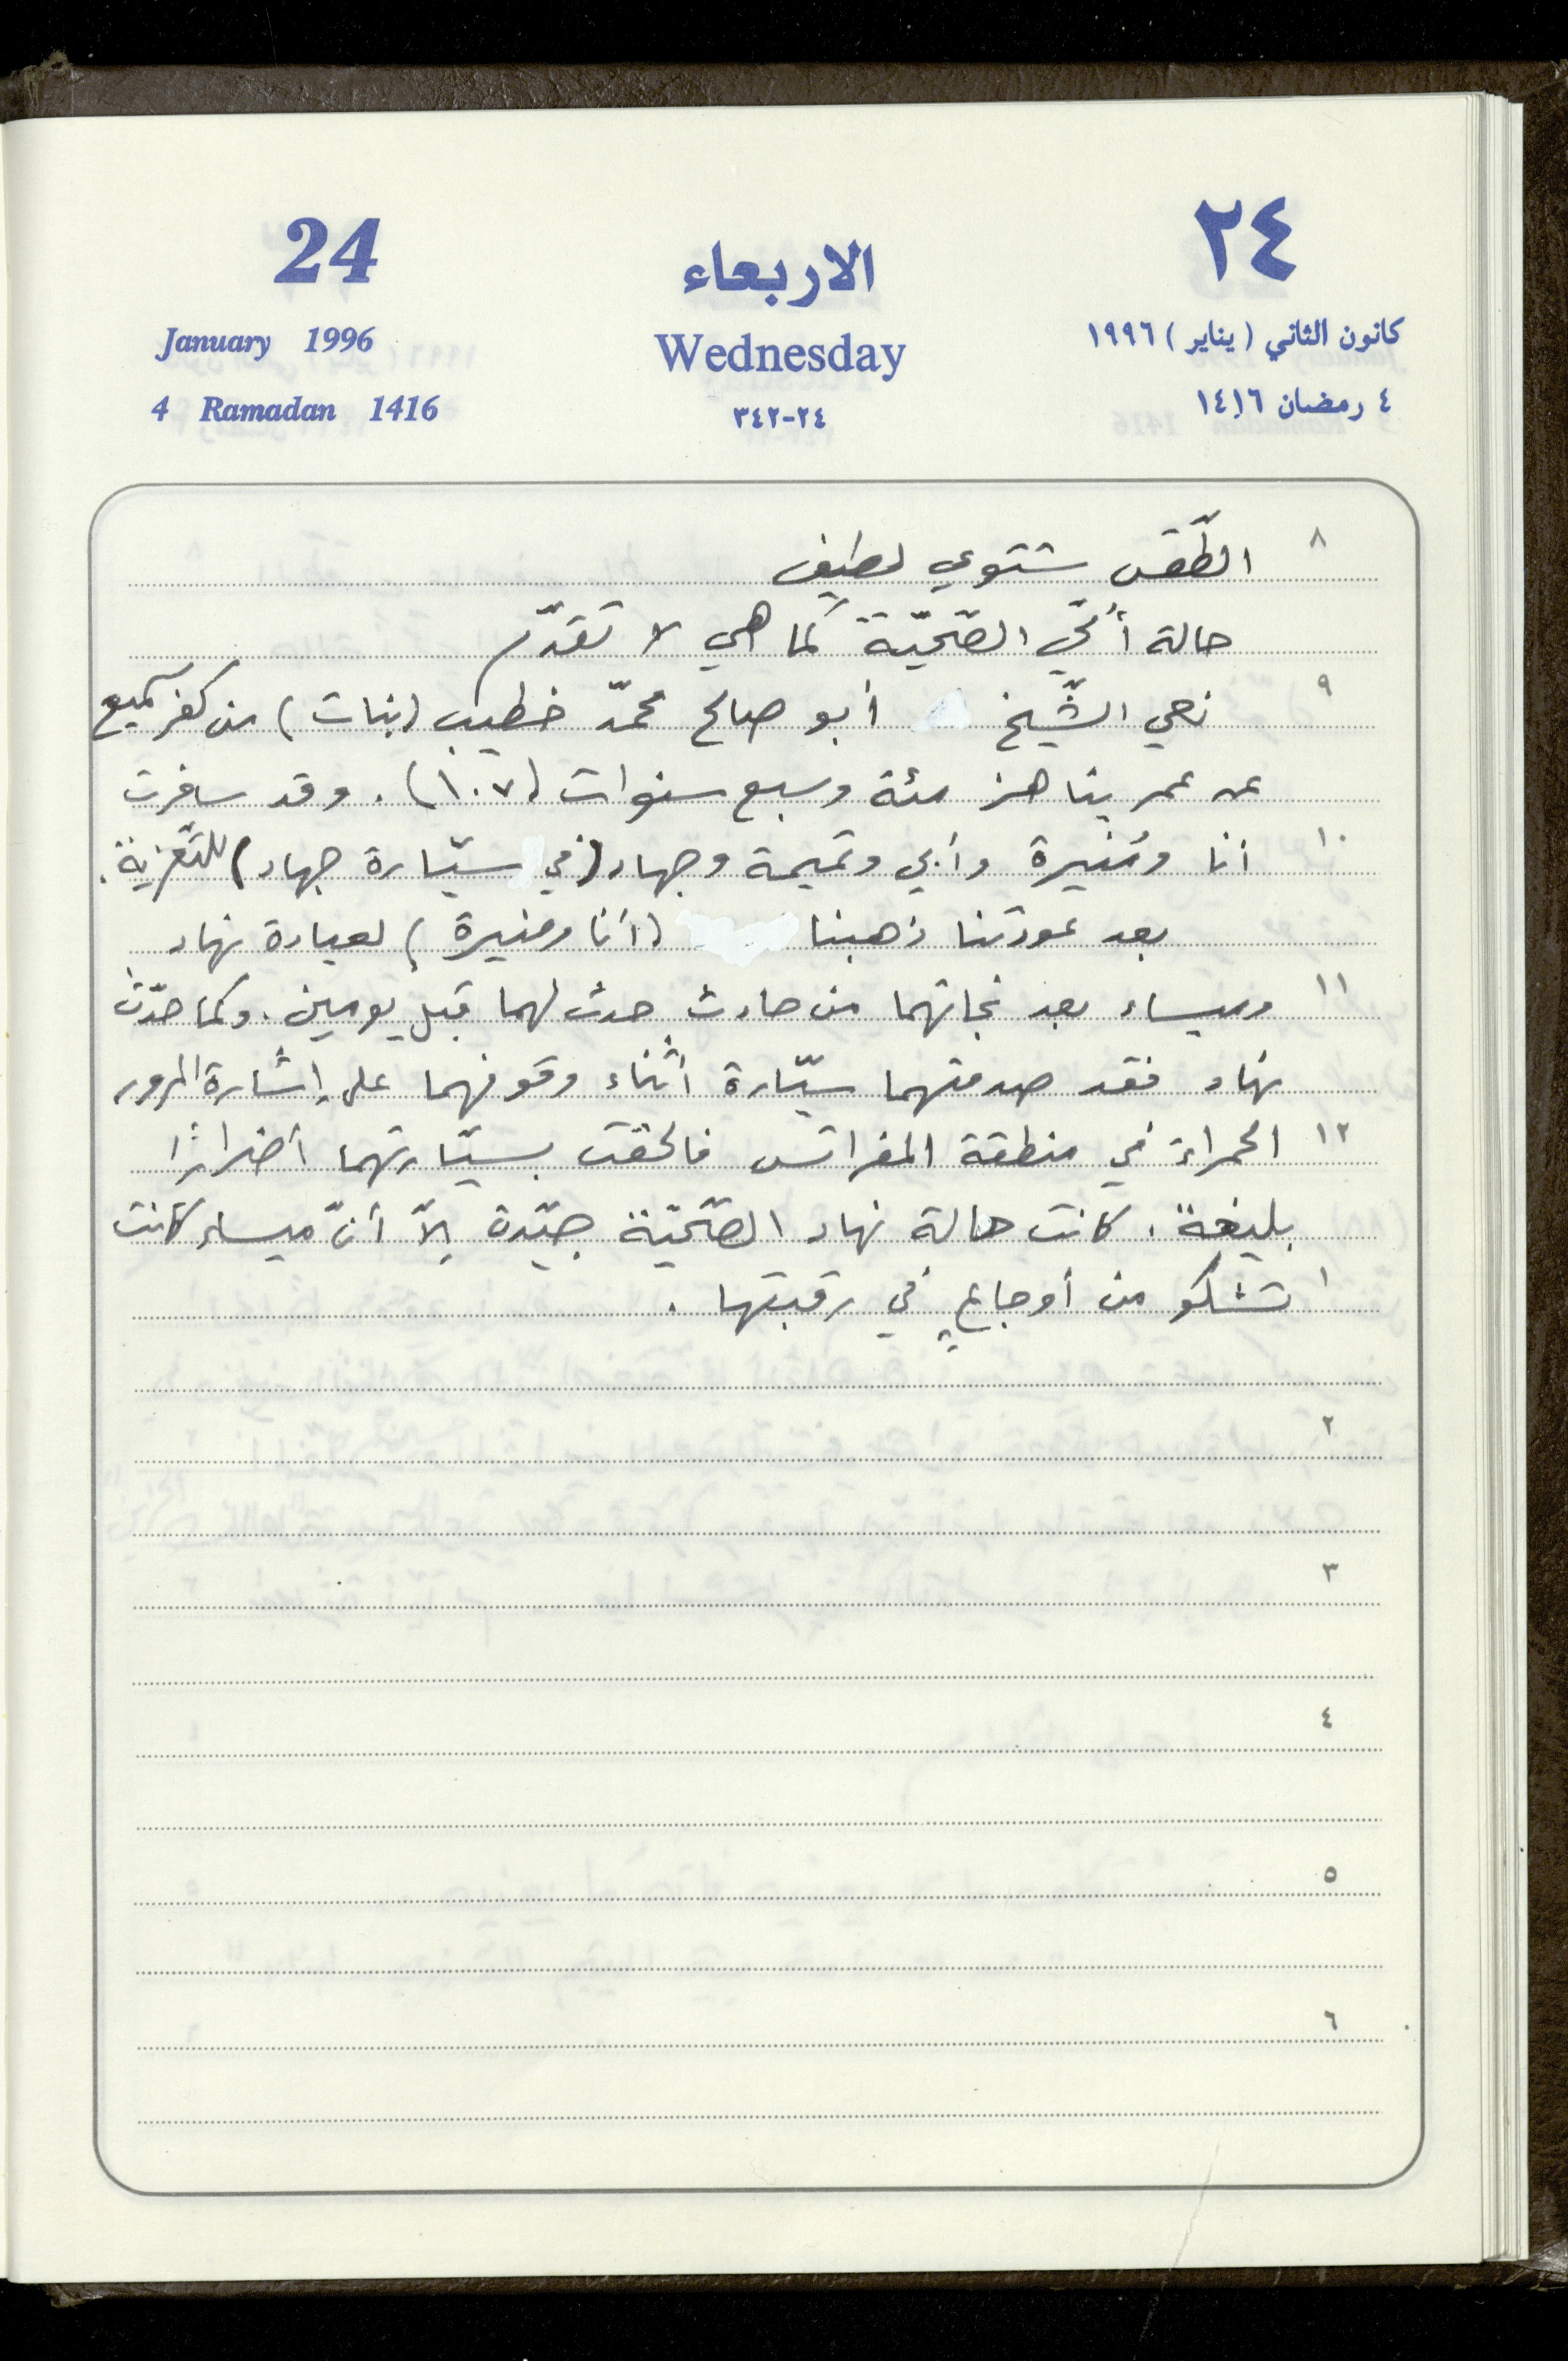 24
الاربعاء
٢٤
January 1996
Wednesday
كانون الثاني (يناير) ١٩٩٦
4 Ramadan 1416
٢٤-٣٤٢
٤ رمضان ١٤١٦
٨ الطّقس شتوي لطيف
حالة أمّي الصّحيّة كما هي لا تقدّم
٩ نعي الشّيخ أبو صالح محمّد خطيب (بنات) من كفر كميع
عن عمر يناهز مئة وسبع سنوات (١٠٧). وقد سافرت
١٠ أنا ومنيرة وأبي وتميمة وجهاد (في سيّارة جهاد) للتّعزية.
بعد عودتنا ذهبنا (أنا ومنيرة) لعيادة نهاد
١١ وميساء بعد نجاتهما من حادث حدث لهما قبل يومين. وكما حدّث
نهاد فقد صدمتهما سيّارة أثناء وقوفهما على إشارة المرور
١٢ الحمراء في منطقة المفراتس فالحقت بسيّارتهما أضرارًا
بليغة. كانت حالة نهاد الصّحيّة جيّدة إلاّ أنّ ميساء كانت
١ تشكو من أوجاعٍ في رقبتها.
٢
٣
٤
٥
٦